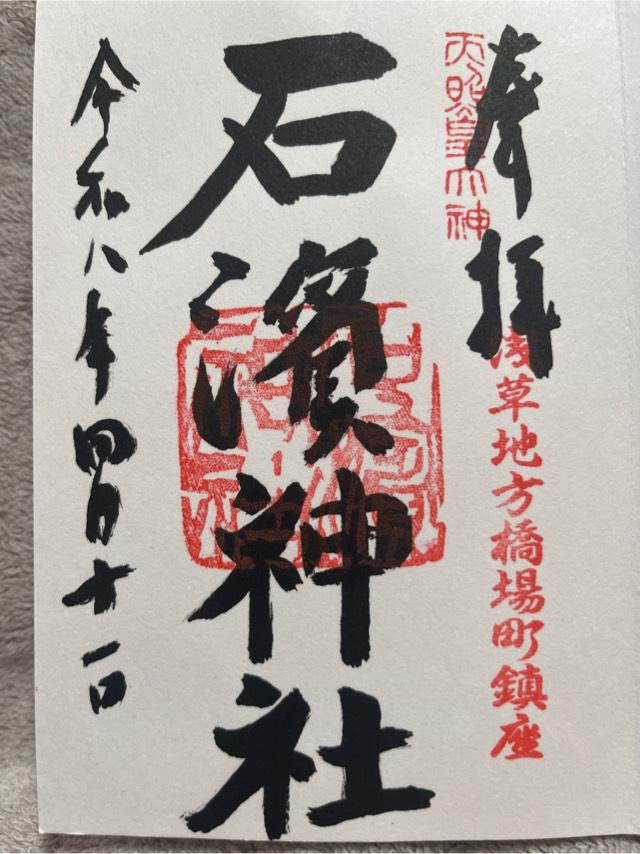 奉拝
天照皇大神
浅草地方橋場町鎮座
石濱神社
令和八年四月十一日